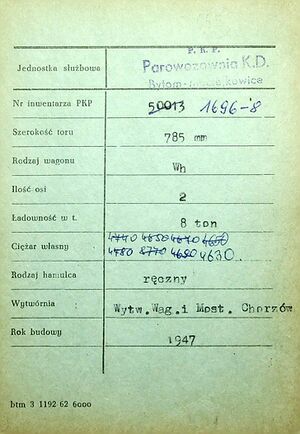 P. K. P.
Jednostka służbowa Parowozownia K.D.
Bytom-
Nr inwentarza PKP 50013 1696-8
Szerokość toru 785 mm
Rodzaj wagonu Wh
Ilość osi 2
Ładowność w t. 8 ton
4740 4650 4640 4650
Ciężar własny 4780 8770 4690 4630.
Rodzaj hamulca ręczny
Wytwórnia Wytw.Wag.i Most. Chorzów
Rok budowy 1947
btm 3 1192 62 6000